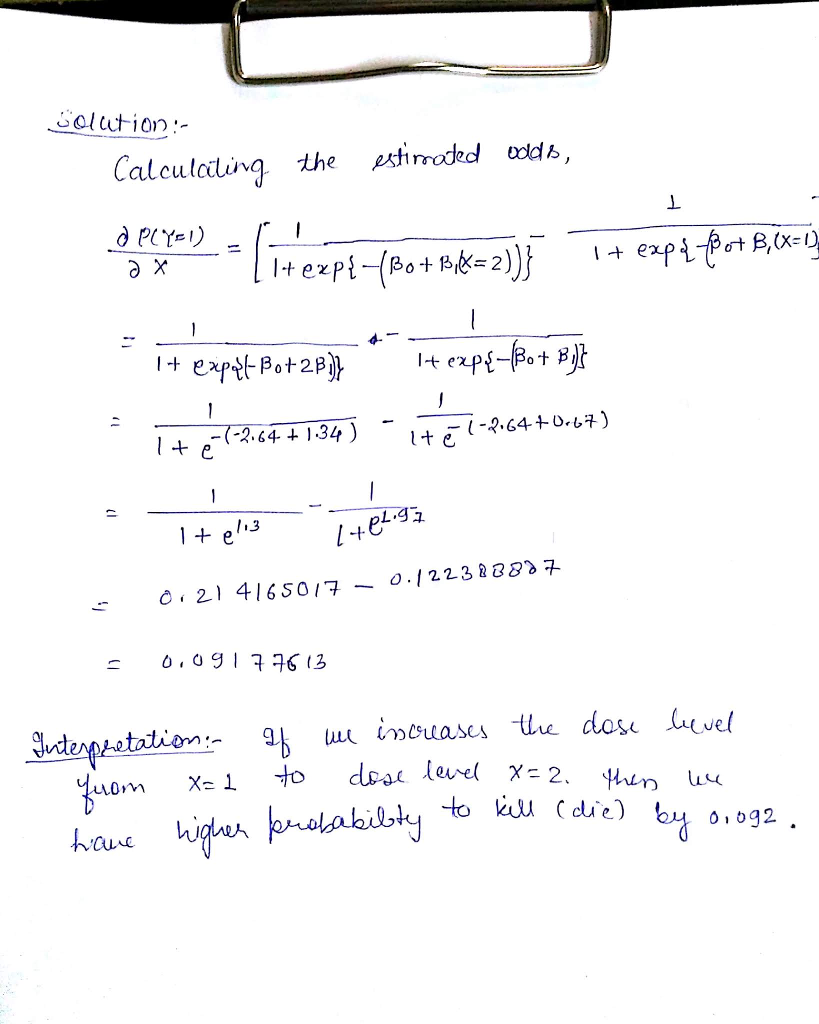 Solution:-
Calculating the estimated odds,
∂P(Y=1)/∂X = [1/(1+exp{-(β0+β1(X=2))}] - 1/(1+exp{-β0+β1(X=1)}
= 1/(1+exp{(-β0+2β1)}) - 1/(1+exp{-(β0+β1)})
= 1/(1+e^-(-2.64+1.34)) - 1/(1+e^-(-2.64+0.67))
= 1/(1+e^1.3) - 1/(1+e^1.97)
= 0.214165017 - 0.122388887
= 0.09177613
Interpretation:- If we increases the dose level
from X=1 to dose level X=2. then we
have higher probability to kill (die) by 0.092.